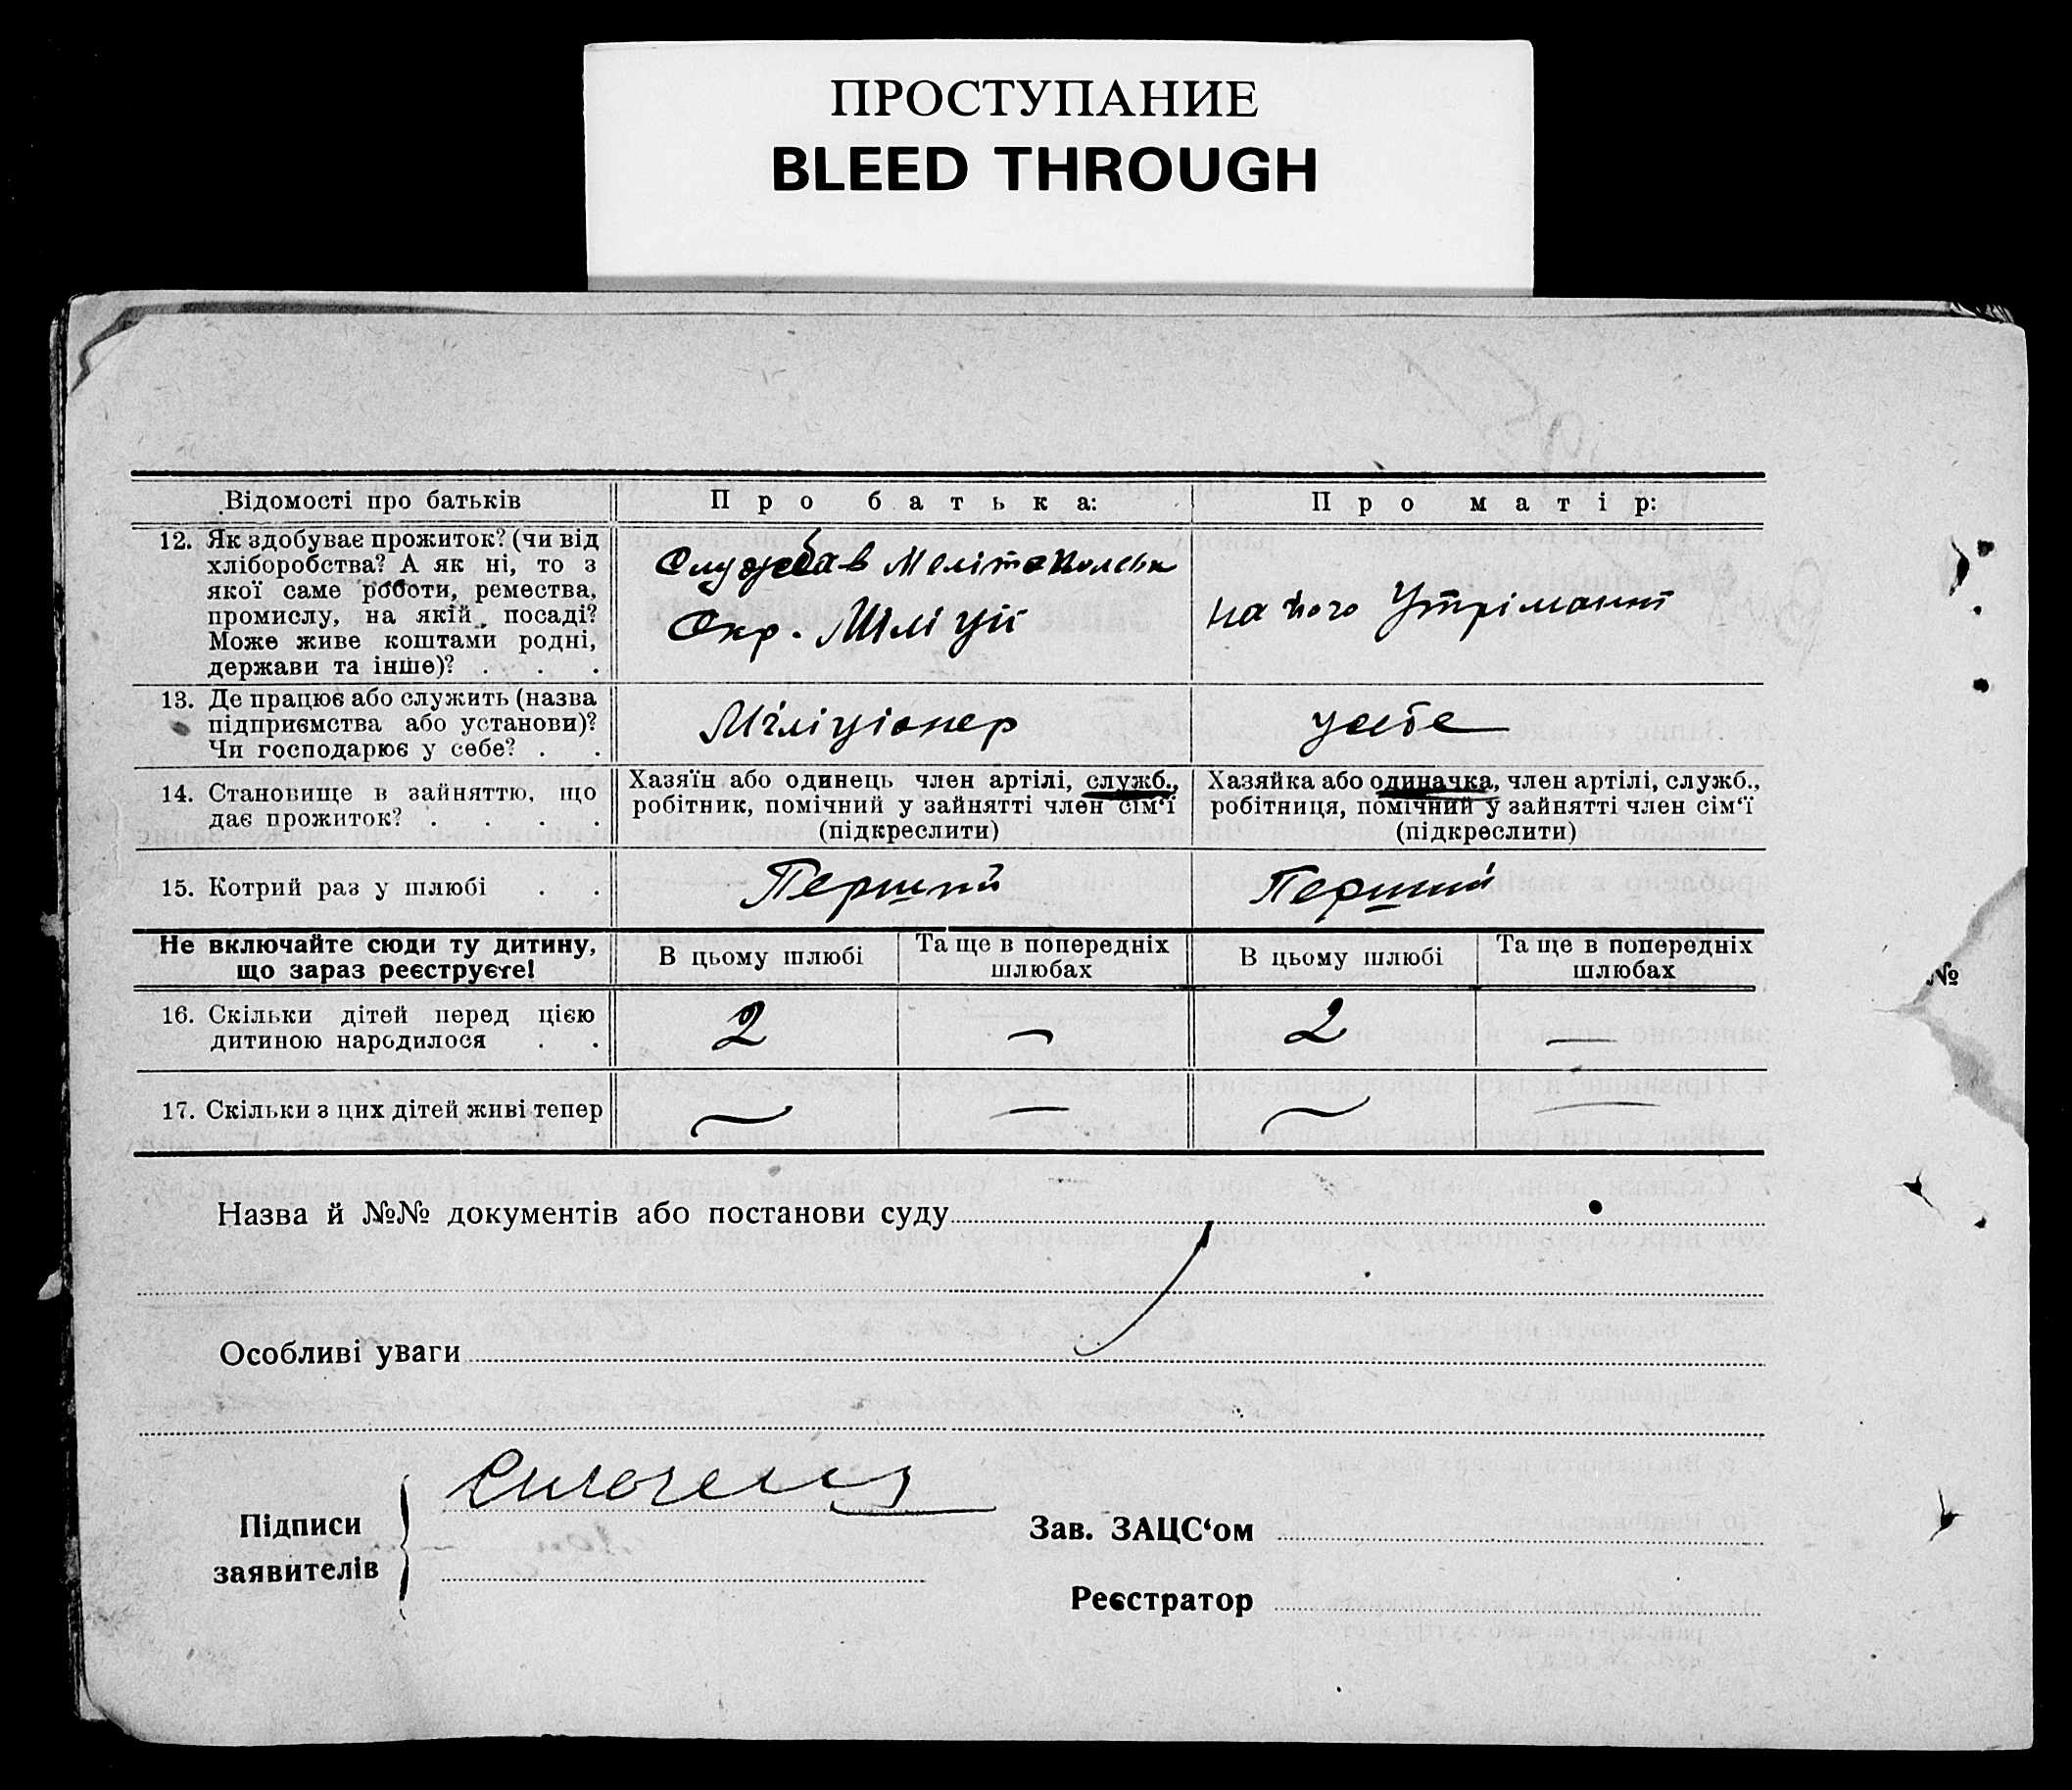 ПРОСТУПАНИЕ
BLEED THROUGH
Відомості про батьків
Про батька:
Про матір:
12. Як здобуває прожиток? (чи від
хліборобства? А як ні, то з
якої саме роботи, ремества,
промислу, на якій посаді?
Може живе коштами родні,
держави та інше)? . . .
Служба в Мелітопольск
Окр. Міліції
на його Утріманні
13. Де працює або служить (назва
підприємства або установи)?
Чи господарює у себе? . .
Міліціонер
у себе
14. Становище в зайняттю, що
дає прожиток? . . . .
Хазяїн або одинець член артілі, служб.,
робітник, помічний у зайнятті член сім‘ї
(підкреслити)
Хазяйка або одиначка, член артілі, служб.,
робітниця, помічний у зайнятті член сім‘ї
(підкреслити)
15. Котрий раз у шлюбі . .
Перший
Перший
Не включайте сюди ту дитину,
що зараз реєструєте!
В цьому шлюбі
Та ще в попередніх
шлюбах
В цьому шлюбі
Та ще в попередніх
шлюбах
№
16. Скільки дітей перед цією
дитиною народилося . .
2
—
2
—
17. Скільки з цих дітей живі тепер
—
—
—
—
Назва й №№ документів або постанови суду
Особливі уваги
Підписи
заявителів
Зав. ЗАЦС‘ом
Реєстратор